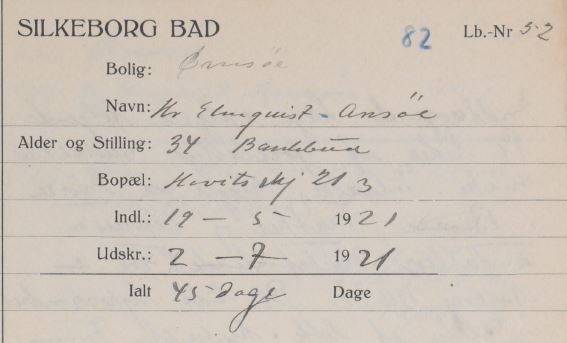 SILKEBORG BAD 82 Lb.-Nr 52
Bolig: Ørnsøe
Navn: Hr Elmquist - Ansøe
Alder og Stilling: 34 Bankbud
Bopæl: 21 3
Indl.: 19 - 5 1921
Udskr.: 2 - 7 1921
Ialt 45 Dage Dage